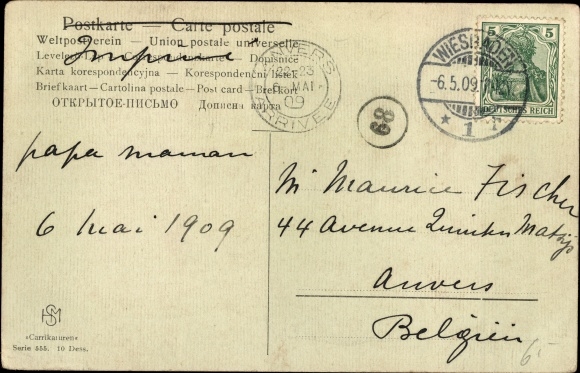 Postkarte — Carte postale
Weltpostverein — Union postale universelle
Dopisnice
Karta korespondencyjna — Korespondenční lístek
Briefkaart — Cartolina postale — Post card — Brefkort
ОТКРЫТОЕ ПИСЬМО Дописна карта
Imprimé
ANVERS
22-23
6 MAI
09
ARRIVEE
68
WIESBADEN
-6.5.09.
* 1
5 5
DEUTSCHES REICH
papa maman
6 mai 1909
M Maurice Fischer
44 Avenue Quinten Matsys
Anvers
Belgien
6.-
HSM
»Carrikaturen«
Serie 555. 10 Dess.